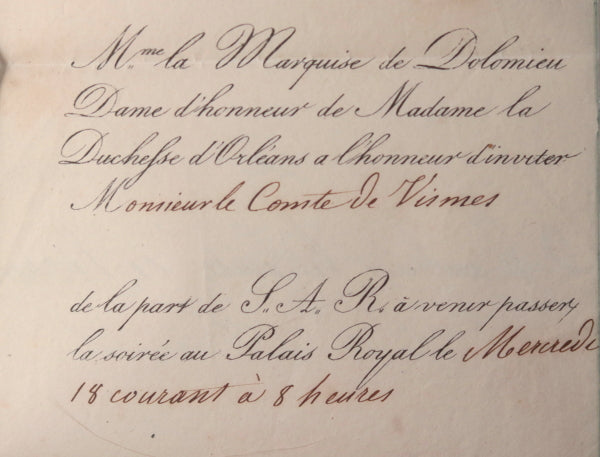 M.me la Marquise de Dolomieu
Dame d'honneur de Madame la
Duchesse d'Orléans a l'honneur d'inviter
Monsieur le Comte de Vismes
de la part de S.. A.. R.. à venir passer
la soirée au Palais Royal le Mercredi
18 courant à 8 heures